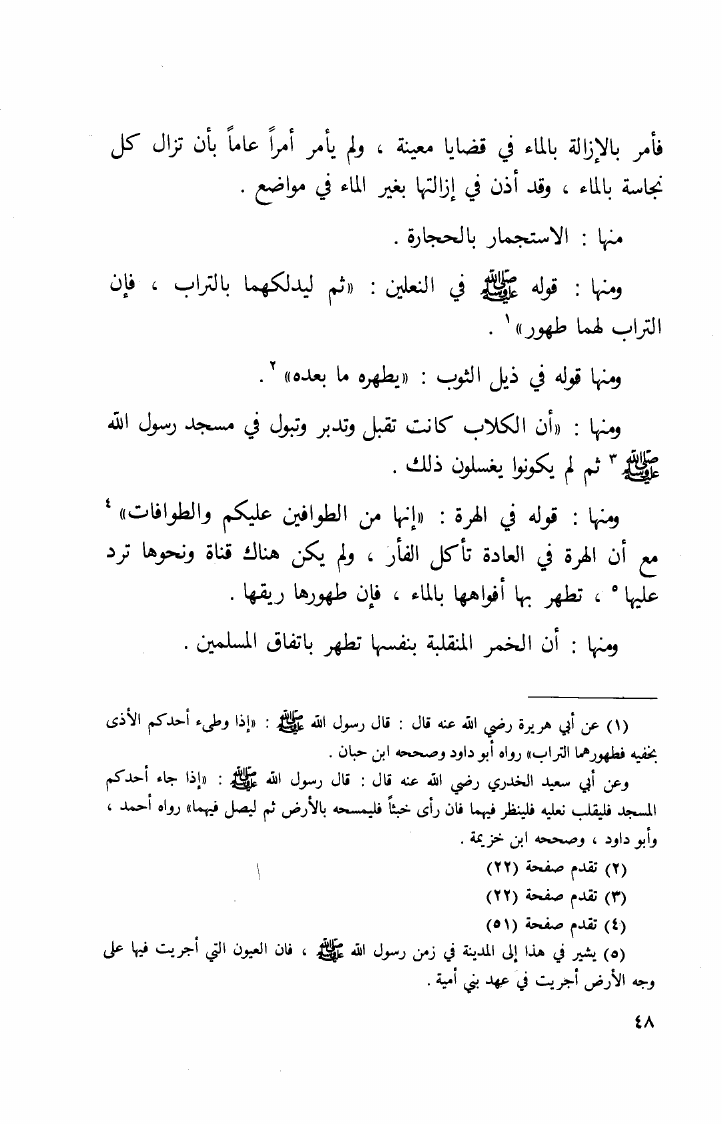 فأمر بالإزالة بالماء في قضايا معينة ، ولم يأمر أمراً عاماً بأن تزال كل
نجاسة بالماء ، وقد أذن في إزالتها بغير الماء في مواضع .
منها : الاستجمار بالحجارة .
ومنها : قوله ﷺ في النعلين : «ثم ليدلكهما بالتراب ، فإن
التراب لهما طهور»١ .
ومنها قوله في ذيل الثوب : «يطهره ما بعده»٢ .
ومنها : «أن الكلاب كانت تقبل وتدبر وتبول في مسجد رسول الله
ﷺ٣ ثم لم يكونوا يغسلون ذلك .
ومنها : قوله في الهرة : «إنها من الطوافين عليكم والطوافات»٤
مع أن الهرة في العادة تأكل الفأر ، ولم يكن هناك قناة ونحوها ترد
عليها٥ ، تطهر بها أفواهها بالماء ، فإن طهورها ريقها .
ومنها : أن الخمر المنقلبة بنفسها تطهر باتفاق المسلمين .
(١) عن أبي هريرة رضي الله عنه قال : قال رسول الله ﷺ : «إذا وطيء أحدكم الأذى
بخفيه فطهورهما التراب» رواه أبو داود وصححه ابن حبان .
وعن أبي سعيد الخدري رضي الله عنه قال : قال رسول الله ﷺ : «إذا جاء أحدكم
المسجد فليقلب نعليه فلينظر فيهما فان رأى خبثاً فليمسحه بالأرض ثم ليصل فيهما» رواه أحمد ،
وأبو داود ، وصححه ابن خزيمة .
(٢) تقدم صفحة (٢٢)
(٣) تقدم صفحة (٢٢)
(٤) تقدم صفحة (٥١)
(٥) يشير في هذا إلى المدينة في زمن رسول الله ﷺ ، فان العيون التي أجريت فيها على
وجه الأرض أجريت في عهد بني أمية .
٤٨